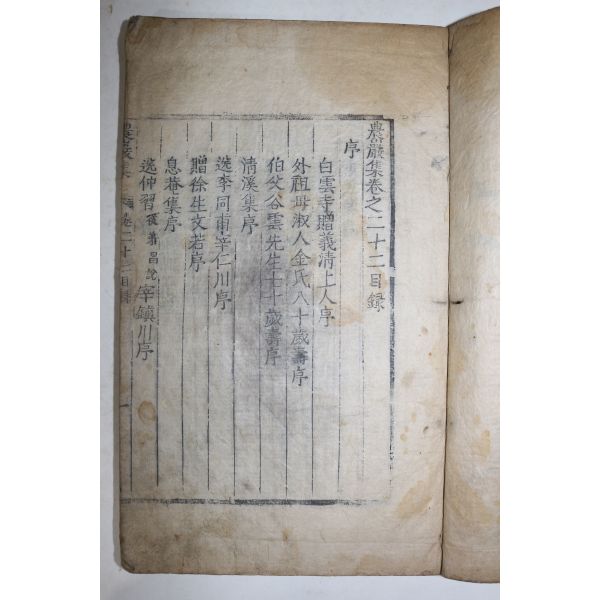 農巖集卷之二十二目録
序
白雲寺贈義淸上人序
外祖母淑人金氏八十歲壽序
伯父谷雲先生七十歲壽序
淸溪集序
送李同甫宰仁川序
贈徐生文若序
息菴集序
送仲習 後弟昌說 宰鎭川序
卷二十二目録 一